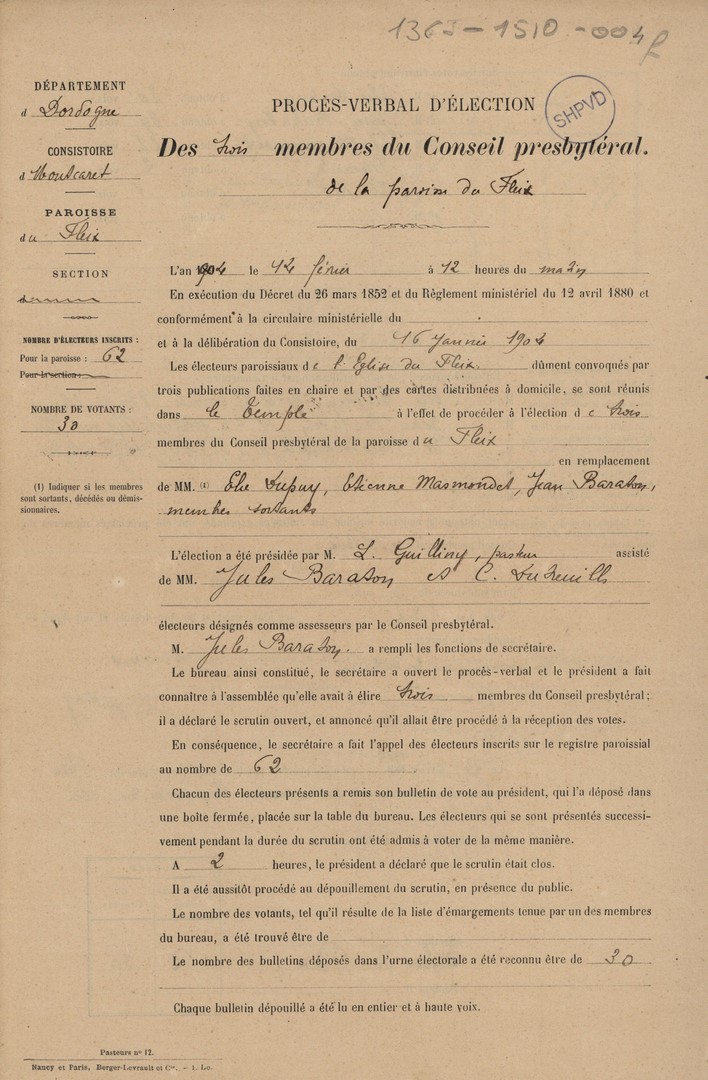 1363-1510-004
SHPVD
DÉPARTEMENT
d Dordogne
CONSISTOIRE
d Montcaret
PAROISSE
du Fleix
SECTION
NOMBRE D'ÉLECTEURS INSCRITS :
Pour la paroisse : 62
Pour la section :
NOMBRE DE VOTANTS :
30
(1) Indiquer si les membres
sont sortants, décédés ou démis-
sionnaires.
PROCÈS-VERBAL D'ÉLECTION
Des trois membres du Conseil presbytéral.
de la paroisse du Fleix
L'an 1904 le 14 février à 12 heures du matin
En exécution du Décret du 26 mars 1852 et du Règlement ministériel du 12 avril 1880 et
conformément à la circulaire ministérielle du
et à la délibération du Consistoire, du 16 Janvier 1904
Les électeurs paroissiaux de l'Eglise du Fleix dûment convoqués par
trois publications faites en chaire et par des cartes distribuées à domicile, se sont réunis
dans le Temple à l'effet de procéder à l'élection de trois
membres du Conseil presbytéral de la paroisse du Fleix
en remplacement
de MM. (1) Elie Dupuy, Etienne Masmondet, Jean Baraton,
membres sortants
L'élection a été présidée par M. L. pasteur assisté
de MM. Jules Baraton et C.
électeurs désignés comme assesseurs par le Conseil presbytéral.
M. Jules Baraton. a rempli les fonctions de secrétaire.
Le bureau ainsi constitué, le secrétaire a ouvert le procès-verbal et le président a fait
connaître à l'assemblée qu'elle avait à élire trois membres du Conseil presbytéral ;
il a déclaré le scrutin ouvert, et annoncé qu'il allait être procédé à la réception des votes.
En conséquence, le secrétaire a fait l'appel des électeurs inscrits sur le registre paroissial
au nombre de 62
Chacun des électeurs présents a remis son bulletin de vote au président, qui l'a déposé dans
une boîte fermée, placée sur la table du bureau. Les électeurs qui se sont présentés successi-
vement pendant la durée du scrutin ont été admis à voter de la même manière.
A 2 heures, le président a déclaré que le scrutin était clos.
Il a été aussitôt procédé au dépouillement du scrutin, en présence du public.
Le nombre des votants, tel qu'il résulte de la liste d'émargements tenue par un des membres
du bureau, a été trouvé être de
Le nombre des bulletins déposés dans l'urne électorale a été reconnu être de 30
Chaque bulletin dépouillé a été lu en entier et à haute voix.
Pasteurs nº 12.
Nancy et Paris, Berger-Levrault et Cie. – 1. Lo.